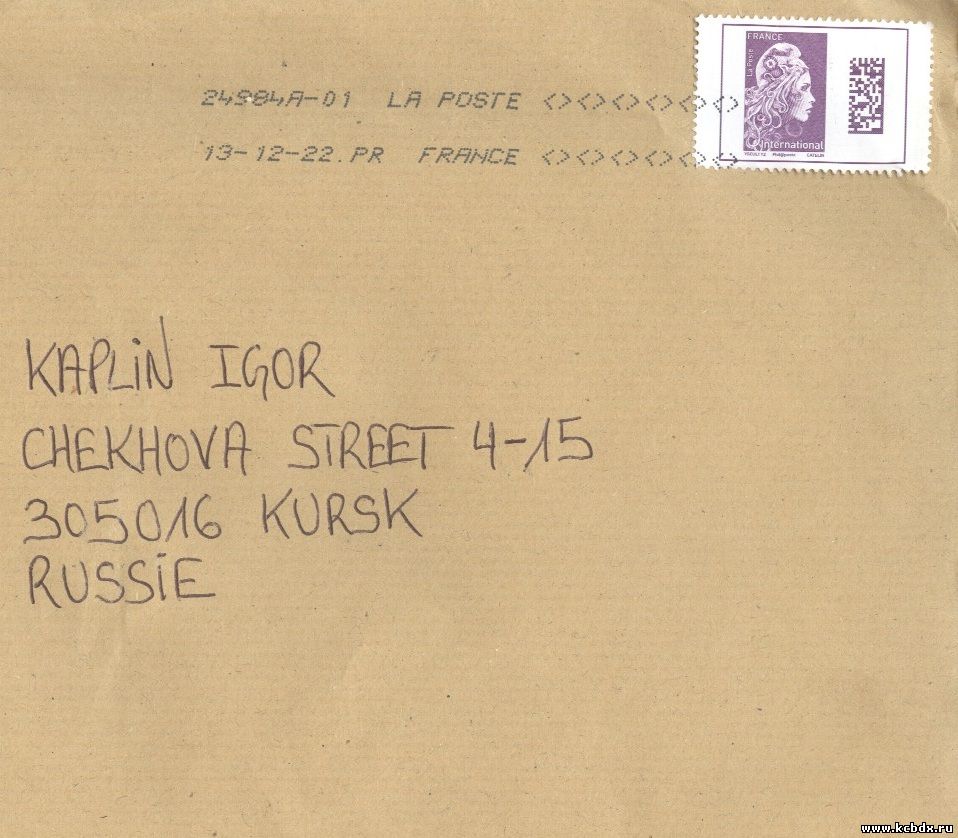 24984A-01 LA POSTE <><><><><><>
13-12-22.PR FRANCE <><><><><><>
FRANCE
La Poste
International
YSEULT YZ Phil@poste CATELIN
KAPLiN IGOR
CHEKHOVA STREET 4-15
305016 KURSK
RUSSiE
www.kcbdx.ru